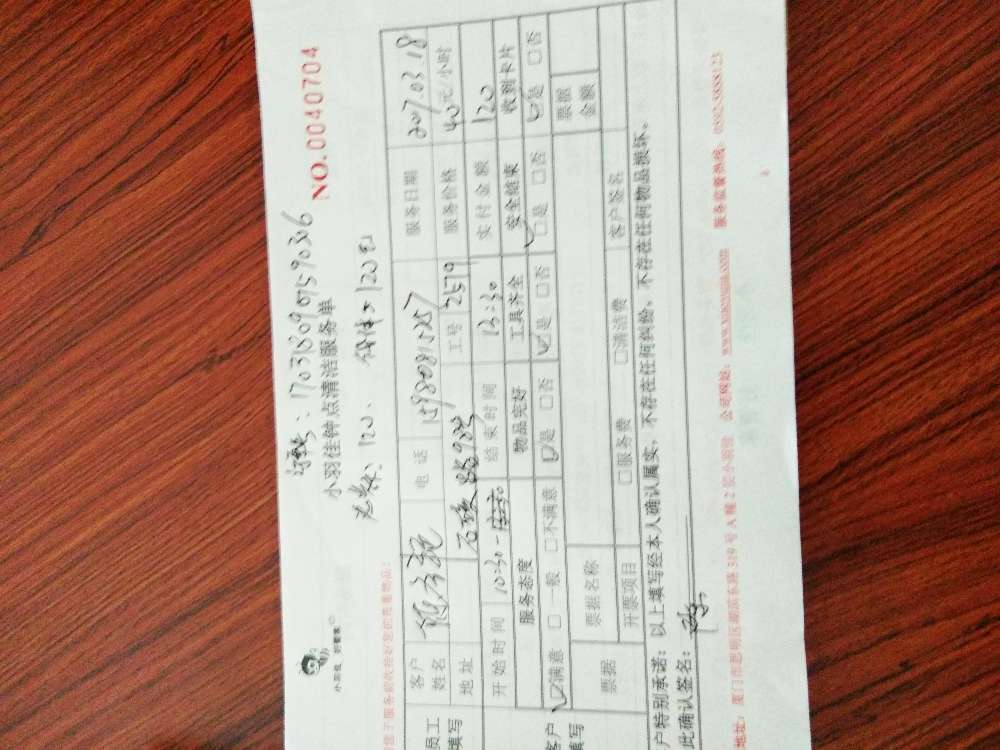 170318090159036
NO.0040704
小羽佳 好管家
小羽佳钟点清洁服务单
总款：120、 120元
员工填写
客户姓名 电话 15980815257 服务日期 2017.03.18
地址 工号 2579 服务价格 40元/小时
开始时间 10:30 结束时间 13:30 实付金额 120
客户填写
服务态度 物品完好 工具齐全 安全结束 收到卡片
☑满意 □一般 □不满意 ☑是 □否 ☑是 □否 □是 □否 ☑是 □否
票据 票据名称 票据金额
开票项目 □服务费 □清洁费 客户签名
户特别承诺：以上填写经本人确认属实，不存在任何纠纷，不存在任何物品损坏。
此确认签名：
地址：厦门市思明区湖滨东路319号A幢2层小羽佳 公司网址：www.xiaoyujia.com 服务监督热线：0592-5888123